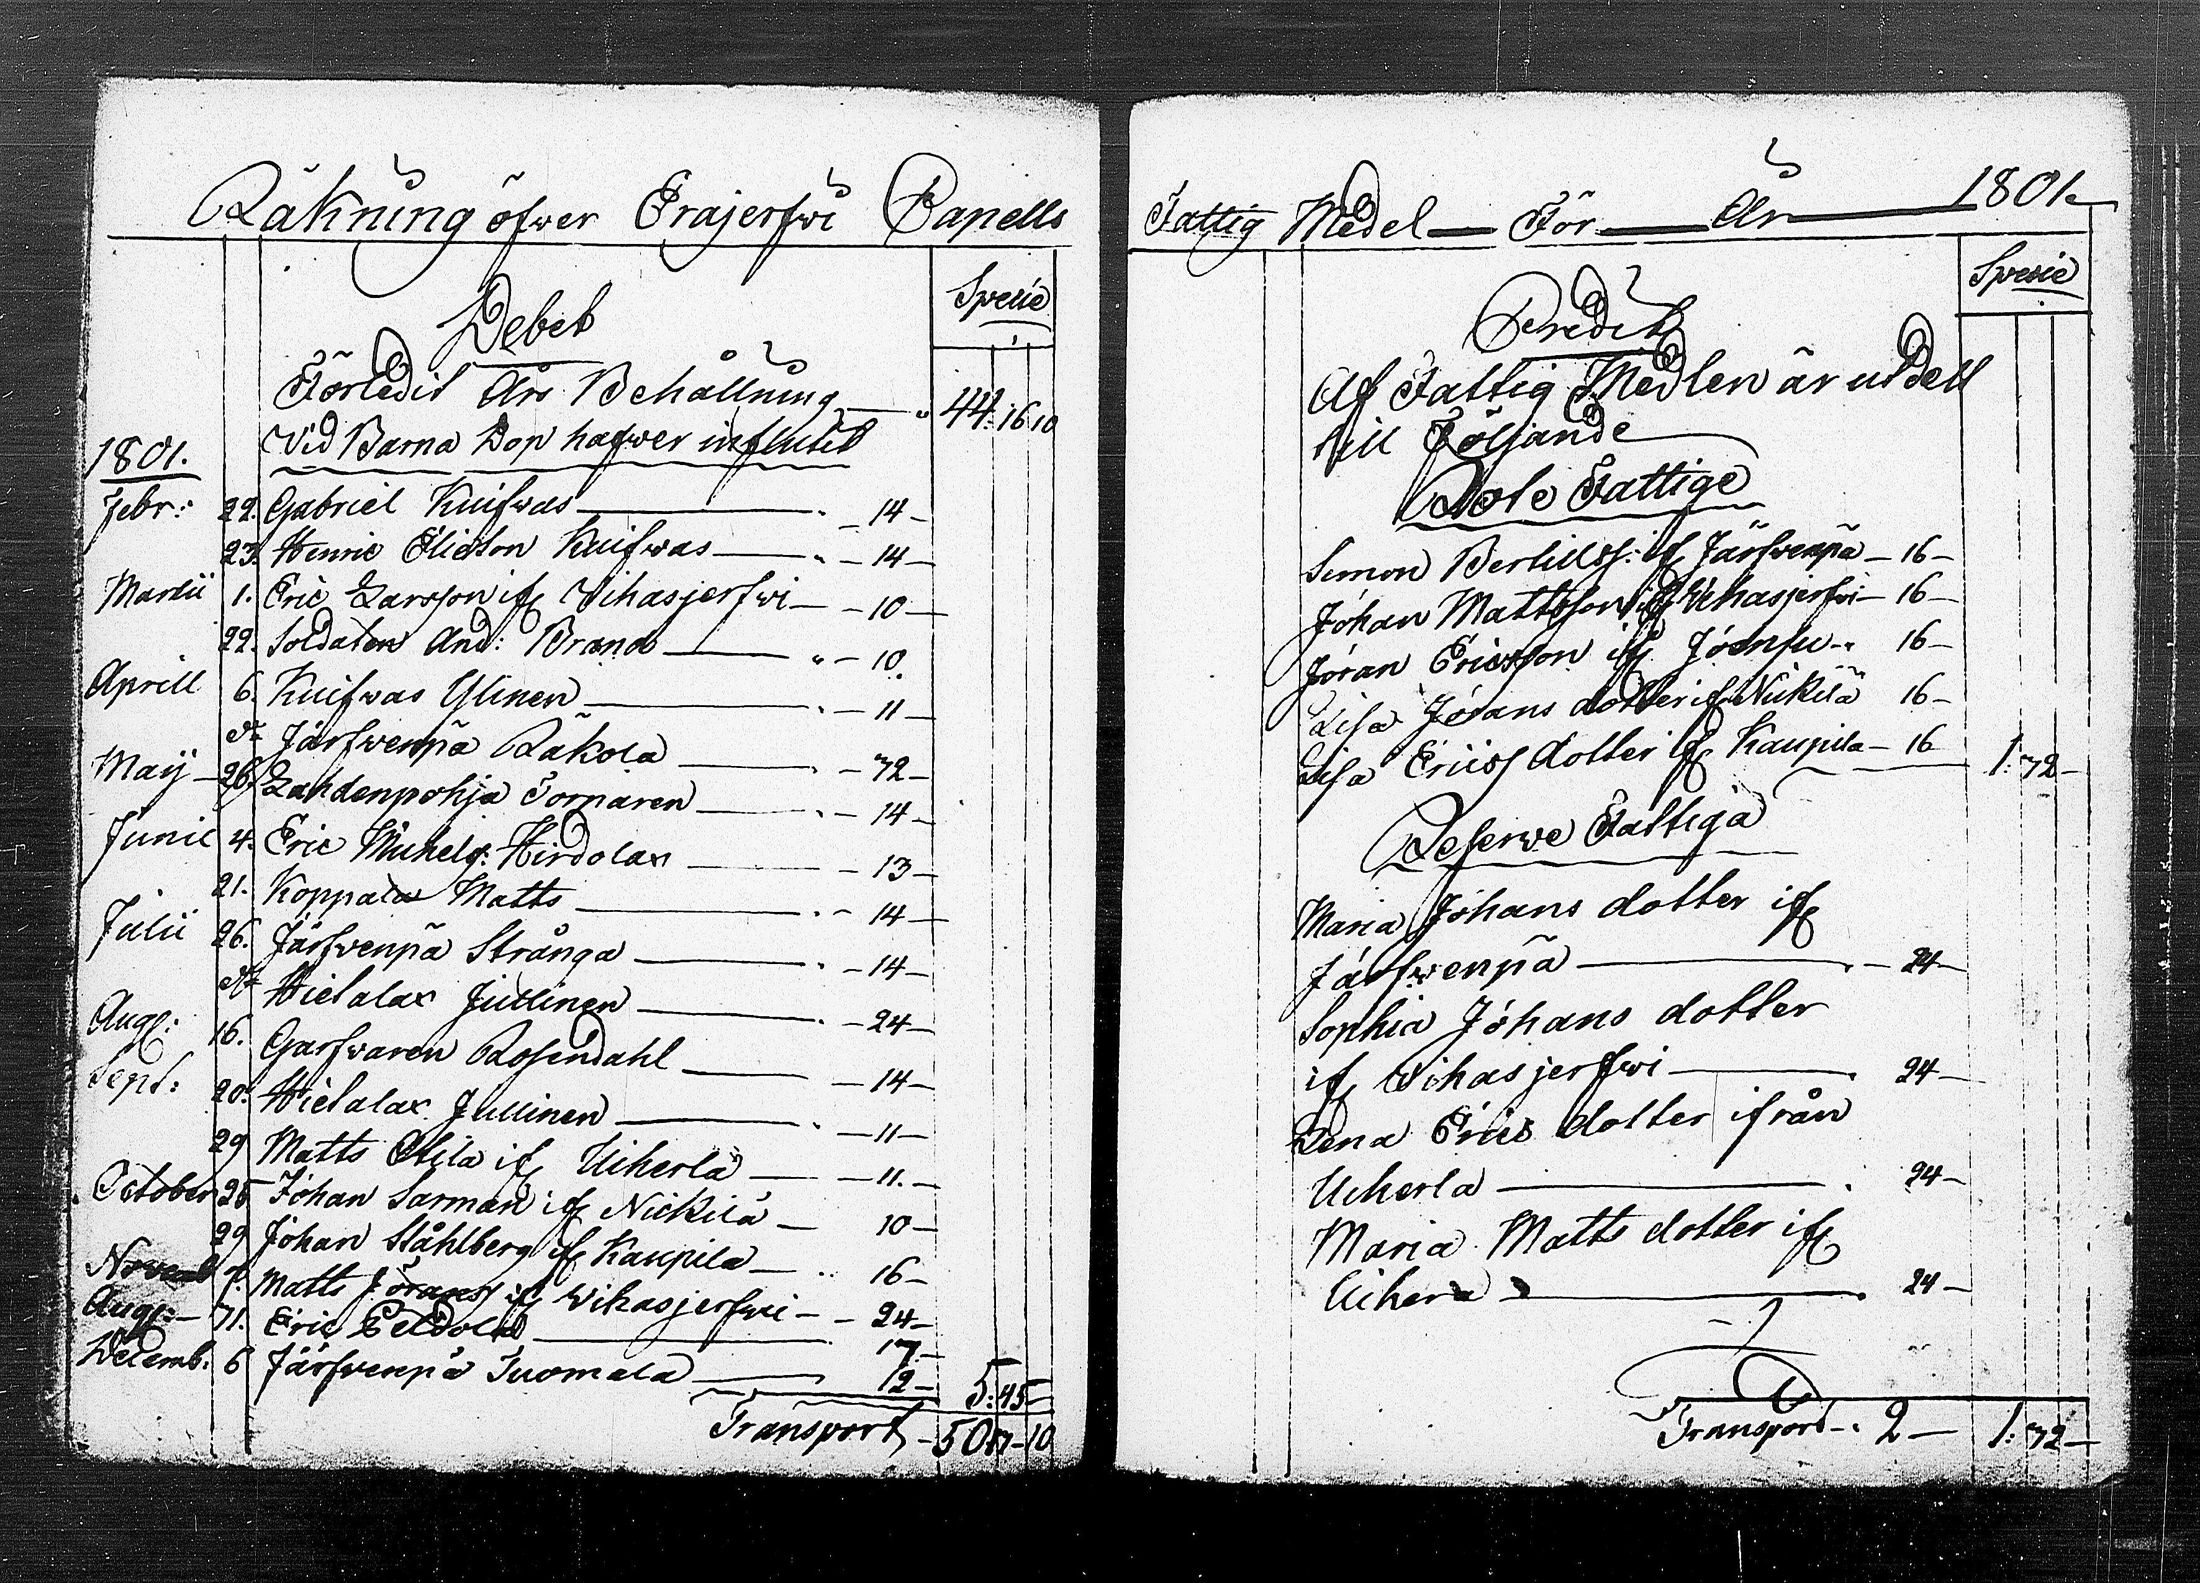 Räkning öfwer Erajerfwi Capells
Specie
Debet
Förledit Års Behållning — 44: 16 10
Vid Barna Dop hafwer influtit
1801.
Febr: 22. Gabriel Kuifwas — 14 —
23. Henric Ericson Kuifwas — 14 —
Martii 1. Eric Larsson if Vihasjerfwi — 10 —
22. Soldaten And: Brand — 10.
Aprill 6. Kuifwas Ylinen — 11 —
do Järfwenpä Räkola — 72 —
Maij 26. Lahdenpohja Tornaren — 14 —
Junii 4. Eric Michels: Hirdolax — 13 —
21. Koppala Matts — 14 —
Julii 26. Järfwenpä Strånga — 14 —
do Hietalax Jullinen — 24 —
Aug: 16. Garfwaren Rosendahl — 14 —
Sept: 20. Hietalax Jullinen — 11 —
29 Matts Atila if Uiherla — 11. —
October 25 Johan Sarman if Nickilä — 10 —
29 Johan Ståhlberg if Kaupila — 16 —
Novemb 1. Matts Jörans if Wihasjerfwi — 24 —
Aug: — 71. Eric — 17 —
Decemb. 6 Järfwenpä Tuomala — 12 — 5: 45 —
Transport — 50 — 10
Fattig Medel — För — År — 1801.
Specie
Credit
Af Fattig Medlen är utdelt
till Följande
Rote Fattige
Simon Bertills: if Järfwenpä — 16 —
Johan Mattsson if Vihasjerfwi — 16 —
Jöran Ericsson if — 16 —
Lisa Jörans dotter if Nickilä 16 —
Lisa Erics dotter if Kaupila — 16 1: 72 —
Reserwe Fattiga
Maria Johans dotter if
Järfwenpä — 24 —
Sophia Johans dotter
if Vihasjerfwi — 24 —
Lena Erics dotter ifrån
Uiherla — 24 —
Maria Matts dotter if
Uiherla — 24 —
Transport — 2 — 1: 72 —